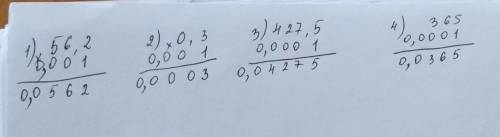 1) 56,2
× 0,001
0,0562
2) 0,3
× 0,001
0,0003
3) 427,5
0,0001
0,04275
4) 365
0,0001
0,0365